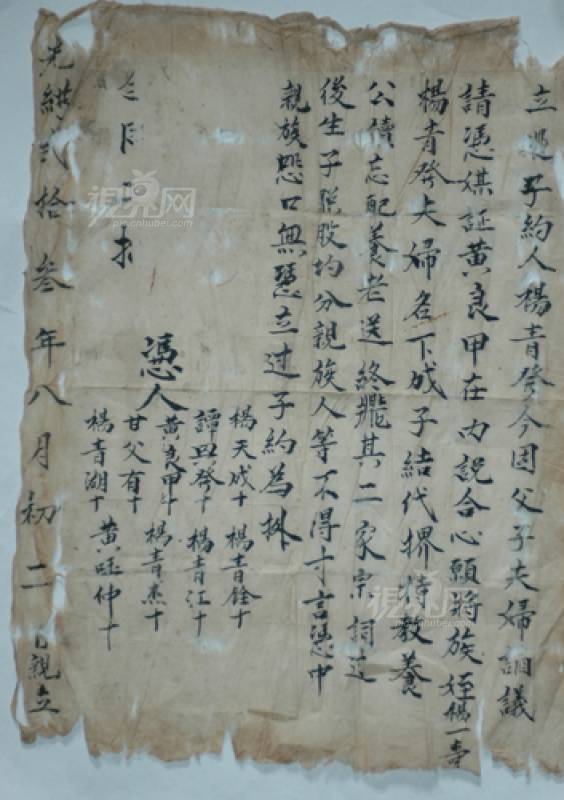 立过子約人楊青發今因父子夫婦謫議
請憑媒証黄良甲在内説合心願将族姪楊一寿
楊青發夫婦名下成子結代撑持教養
公債忘配養老送終兆其二家宗祠过
後生子照股均分親族人等不得寸言憑中
親族恐口無憑立过子約為據
憑人
楊天成十 楊青銓十
譚興發十 楊青江十
黄良甲十 楊青杰十
甘父有十
楊青湖十 黄旺仲十
光緒弍拾叁年八月初二日親立
視觉网
pic.cnhubei.com